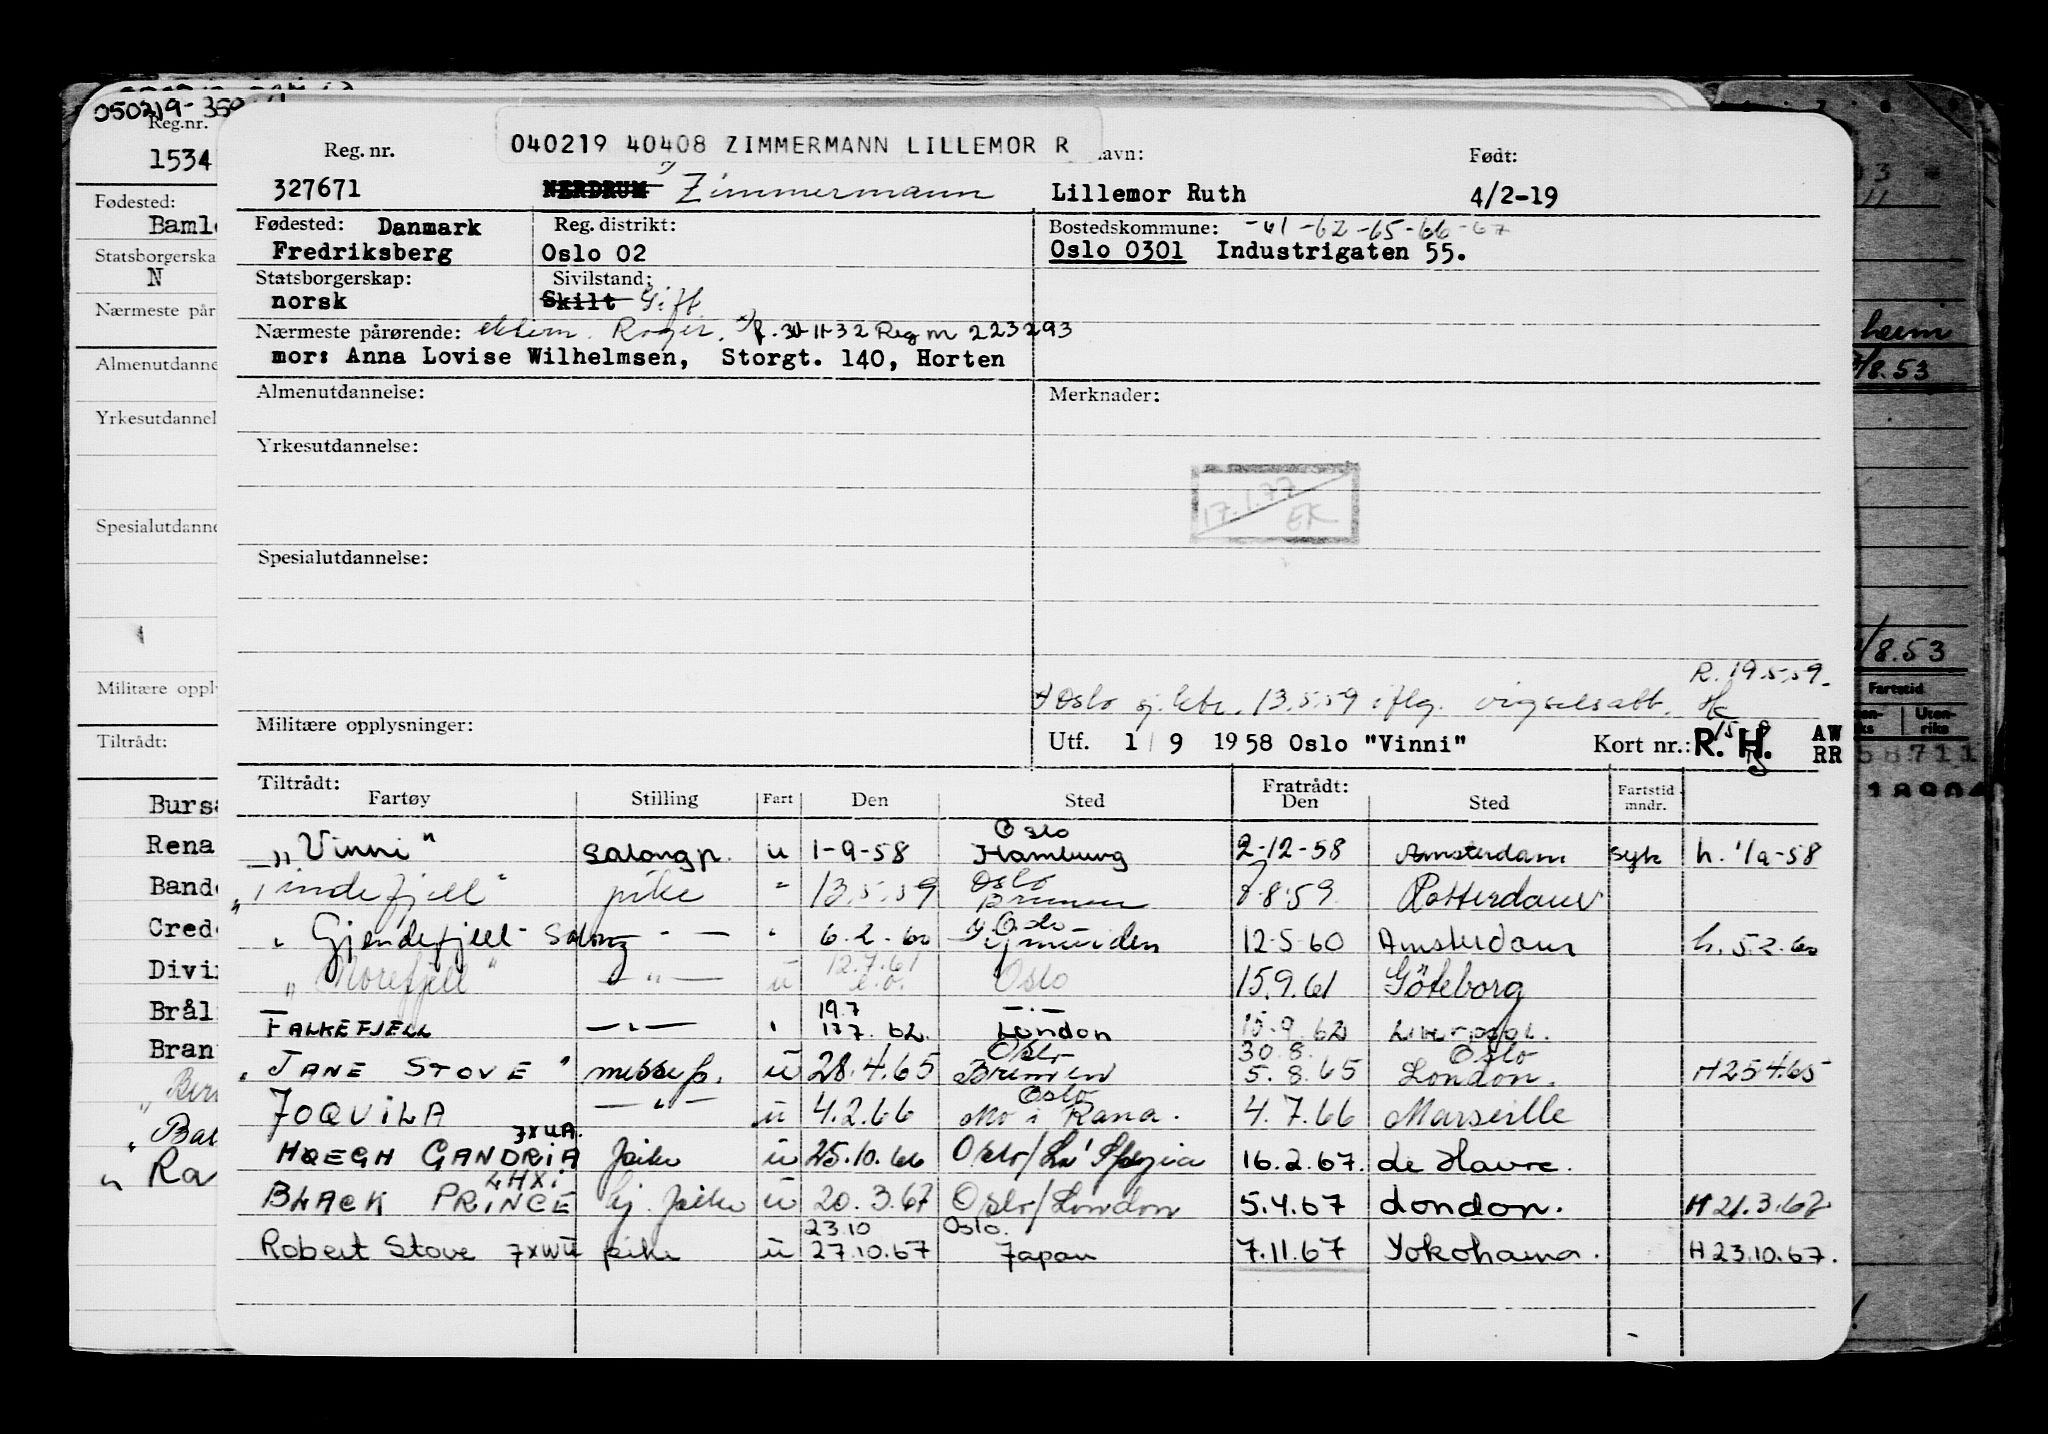 050219-350
Reg.nr.
1534
Fødested:
Statsborgerska
N
Nærmeste pår
Almenutdanne
Yrkesutdannel
Spesialutdanne
Militære oppl
Tiltrådt:
Rena
Divi
Brål
Bran
Ra
040219 40408 ZIMMERMANN LILLEMOR R
Reg. nr. avn: Født:
327671 NERDRUM Zimmermann Lillemor Ruth 4/2-19
Fødested: Danmark Reg. distrikt: Bostedskommune: -61-62-65-66-67
Fredriksberg Oslo 02 Oslo 0301 Industrigaten 55.
Statsborgerskap: Sivilstand:
norsk Skilt Gift
Nærmeste pårørende: ektem. Roger. f. 30-11-32 Reg nr 223293
mor: Anna Lovise Wilhelmsen, Storgt. 140, Horten
Almenutdannelse: Merknader:
Yrkesutdannelse:
17.1.77
EK
Spesialutdannelse:
R. 19.5.59.
Oslo sj. ktr. 13.5.59 iflg. vigselsatt.
Militære opplysninger: Utf. 1/9 1958 Oslo "Vinni" Kort nr.: R. H. AW
RR
Tiltrådt: Fratrådt:
Fartøy Stilling Fart Den Sted Den Sted Fartstid mndr.
Oslo
"Vinni" Salongp. u 1-9-58 Hamburg 2-12-58 Amsterdam syk h. 1/9-58
Oslo
"Tindefjell" pike " 13.5.59 Bremen 8.59 Rotterdam
Oslo
" Gjendefjell" Salong - " - " 6.2.60 Ymuiden 12-5-60 Amsterdam h. 5.2.60
12.7.61
"Norefjell" - " - u e.o. Oslo 15.9.61 Göteborg
19.7 - . -
FALKEFJELL - " - " 17.7.62 London 15.9.62 Liverpool.
Oslo 30.8. Oslo
"JANE STOVE" messep. u 28.4.65 Bremen 5.8.65 London. H 25.4.65
Oslo
JOQUILA - " - u 4.2.66 Mo i Rana. 4.7.66 Marseille
7XUA.
HØEGH GANDRIA pike u 25.10.66 Oslo/La Spezia 16.2.67. de Havre.
LHXi
BLACK PRINCE hj. pike u 20.3.67 Oslo/London 5.4.67 London. H 21.3.67
23.10 Oslo.
Robert Stove 7XWU pike u 27.10.67 Japan 7.11.67 Yokohama. H 23.10.67.
heim
/8.53
/8.53
Fartstid
58711